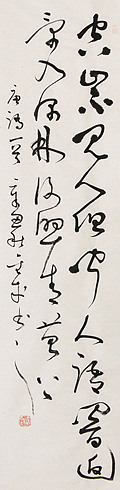 空山不見人但聞人語響返
景入深林復照青苔上
唐詩一首 書